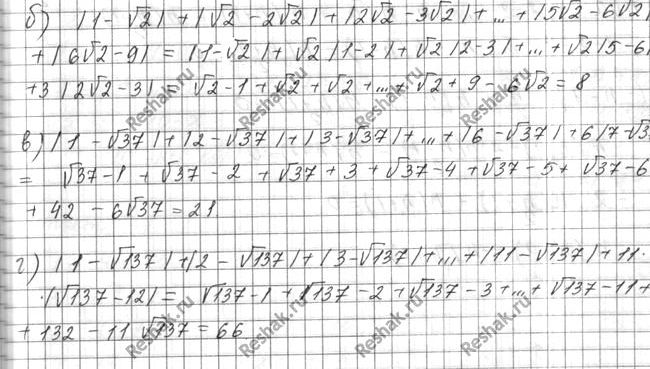 б) |1 - √2| + |√2 - 2√2| + |2√2 - 3√2| + ... + |5√2 - 6√2|
+ |6√2 - 9| = |1 - √2| + √2|1 - 2| + √2|2 - 3| + ... + √2|5 - 6|
+ 3|2√2 - 3| = √2 - 1 + √2 + √2 + ... + √2 + 9 - 6√2 = 8
в) |1 - √37| + |2 - √37| + |3 - √37| + ... + |6 - √37| + 6|7 - √3
= √37 - 1 + √37 - 2 + √37 + 3 + √37 - 4 + √37 - 5 + √37 - 6
+ 42 - 6√37 = 21
г) |1 - √137| + |2 - √137| + |3 - √137| + ... + |11 - √137| + 11·
·|√137 - 12| = √137 - 1 + √137 - 2 + √137 - 3 + ... + √137 - 11 +
+ 132 - 11√137 = 66
Reshak.ru
Reshak.ru
Reshak.ru
Reshak.ru
Reshak.ru
Reshak.ru